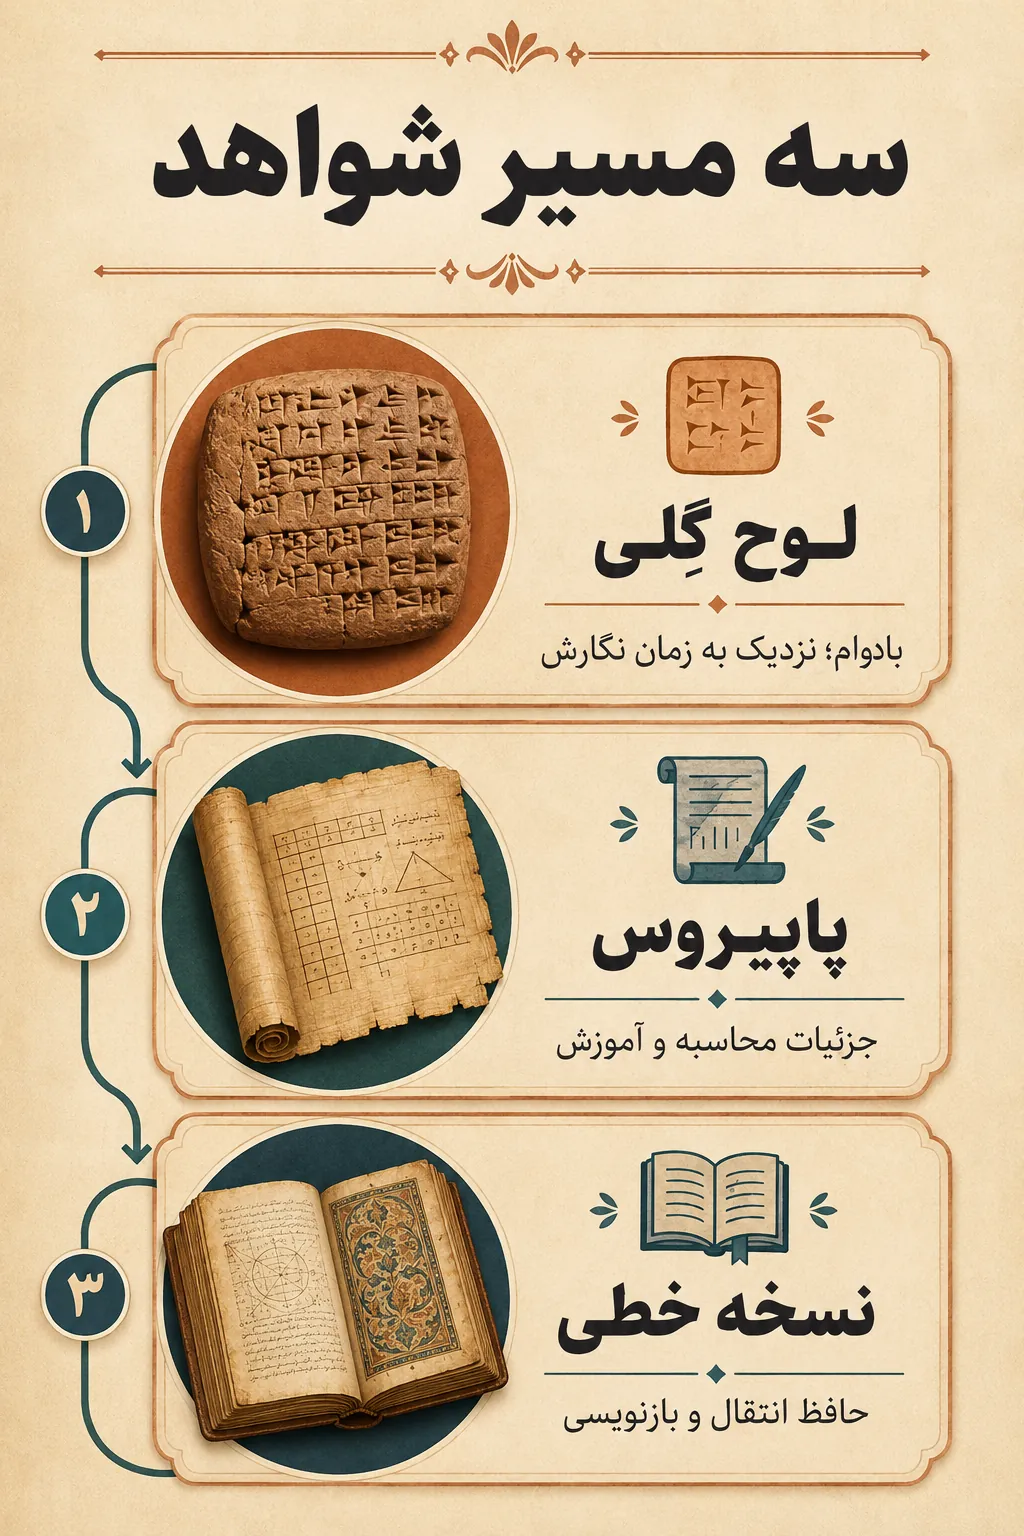 سه مسیر شواهد
۱
لوح گِلی
بادوام؛ نزدیک به زمان نگارش
۲
پاپیروس
جزئیات محاسبه و آموزش
۳
نسخه خطی
حافظ انتقال و بازنویسی